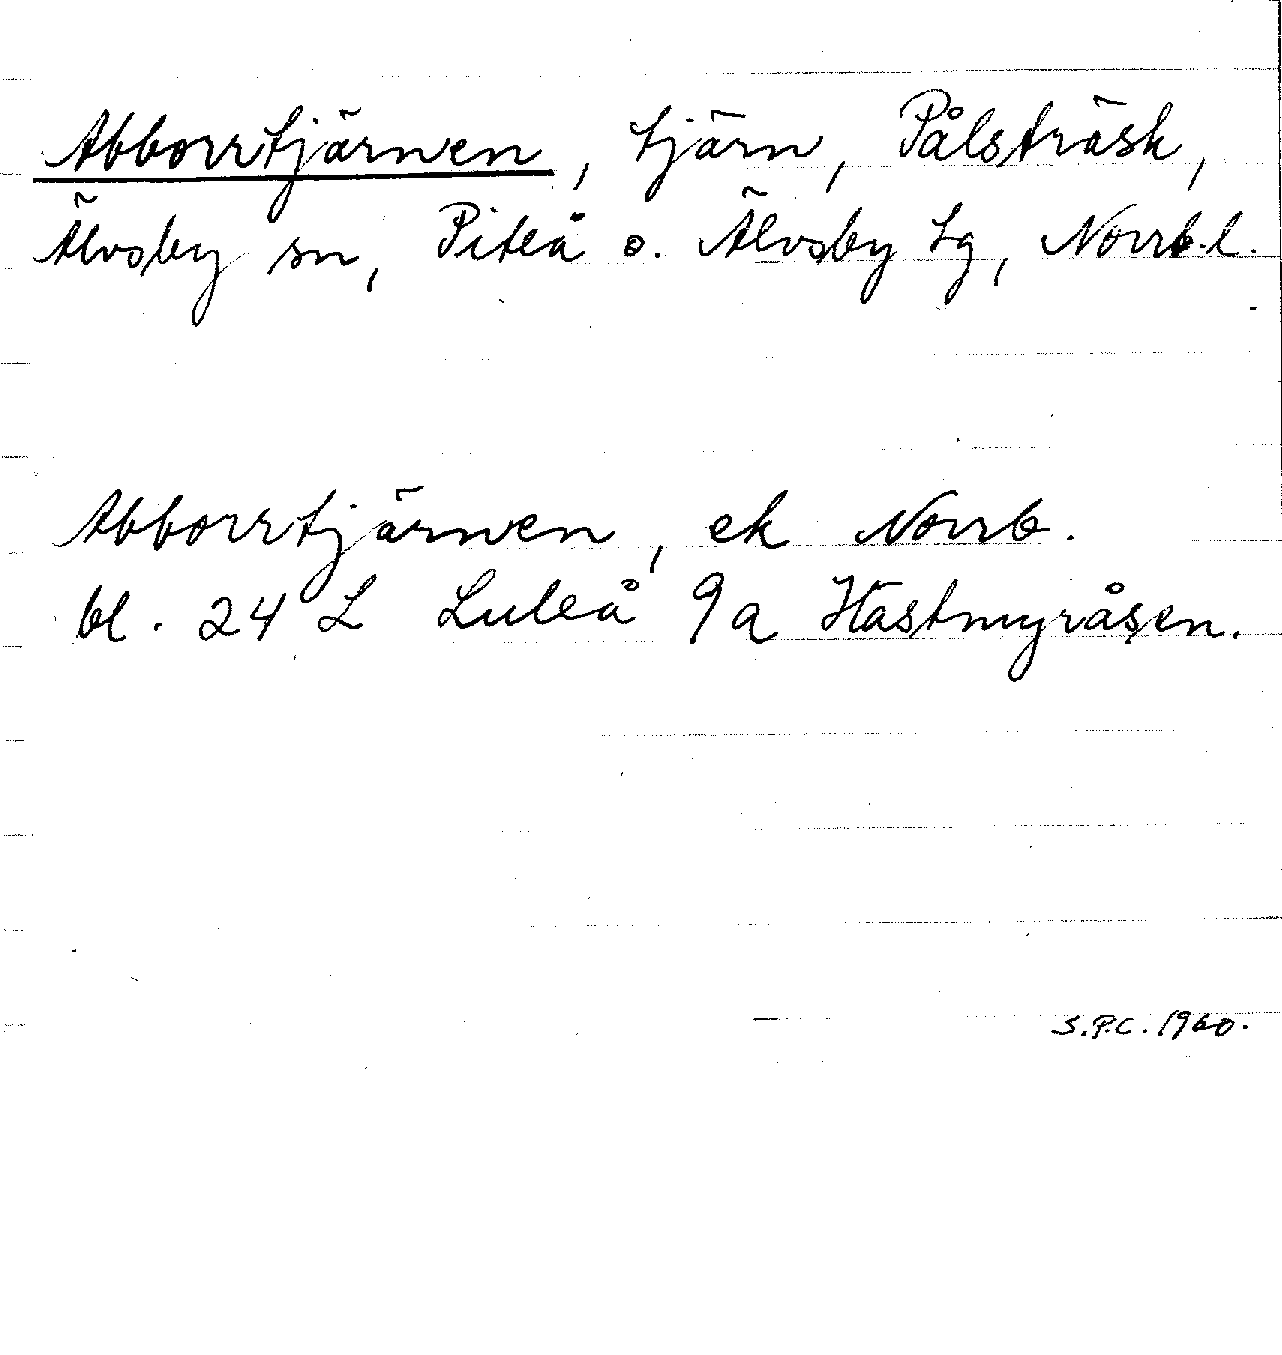 Abborrtjärnen, tjärn, Pålsträsk,
Älvsby sn, Piteå o. Älvsby tg, Norrb.l.
Abborrtjärnen, ek Norrb.
bl. 24 L Luleå 9a Hästmyråsen.
S.P.C. 1960.